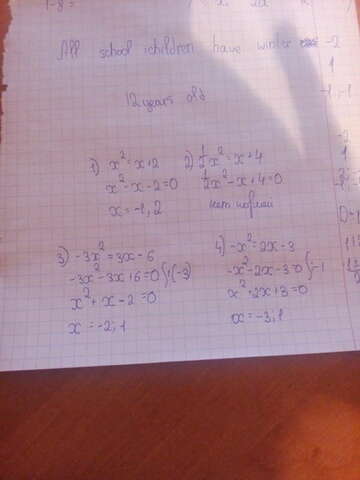 All school children have winter
12 years old
1) x² = x+2
x²-x-2=0
x=-1,2
2) ½x² = x+4
½x²-x+4=0
нет корней
3) -3x² = 3x-6
-3x²-3x+6=0 |:(-3)
x²+x-2=0
x=-2;1
4) -x² = 2x-3
x=-3;1